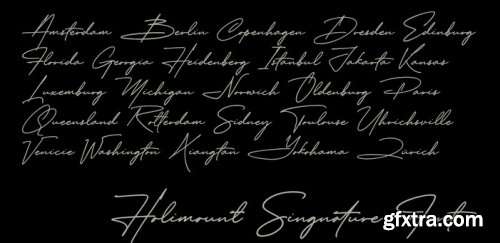 Amsterdam Berlin Copenhagen Dresden Edinburg
Florida Georgia Heidenberg Istanbul Jakarta Kansas
Luxemburg Michigan Norwich Oldenburg Paris
Queensland Rotterdam Sidney Toulouse Uhrichsville
Venicie Washington Xiangtan Yokohama Zurich
Holimount Singnature Font
gfxtra.com